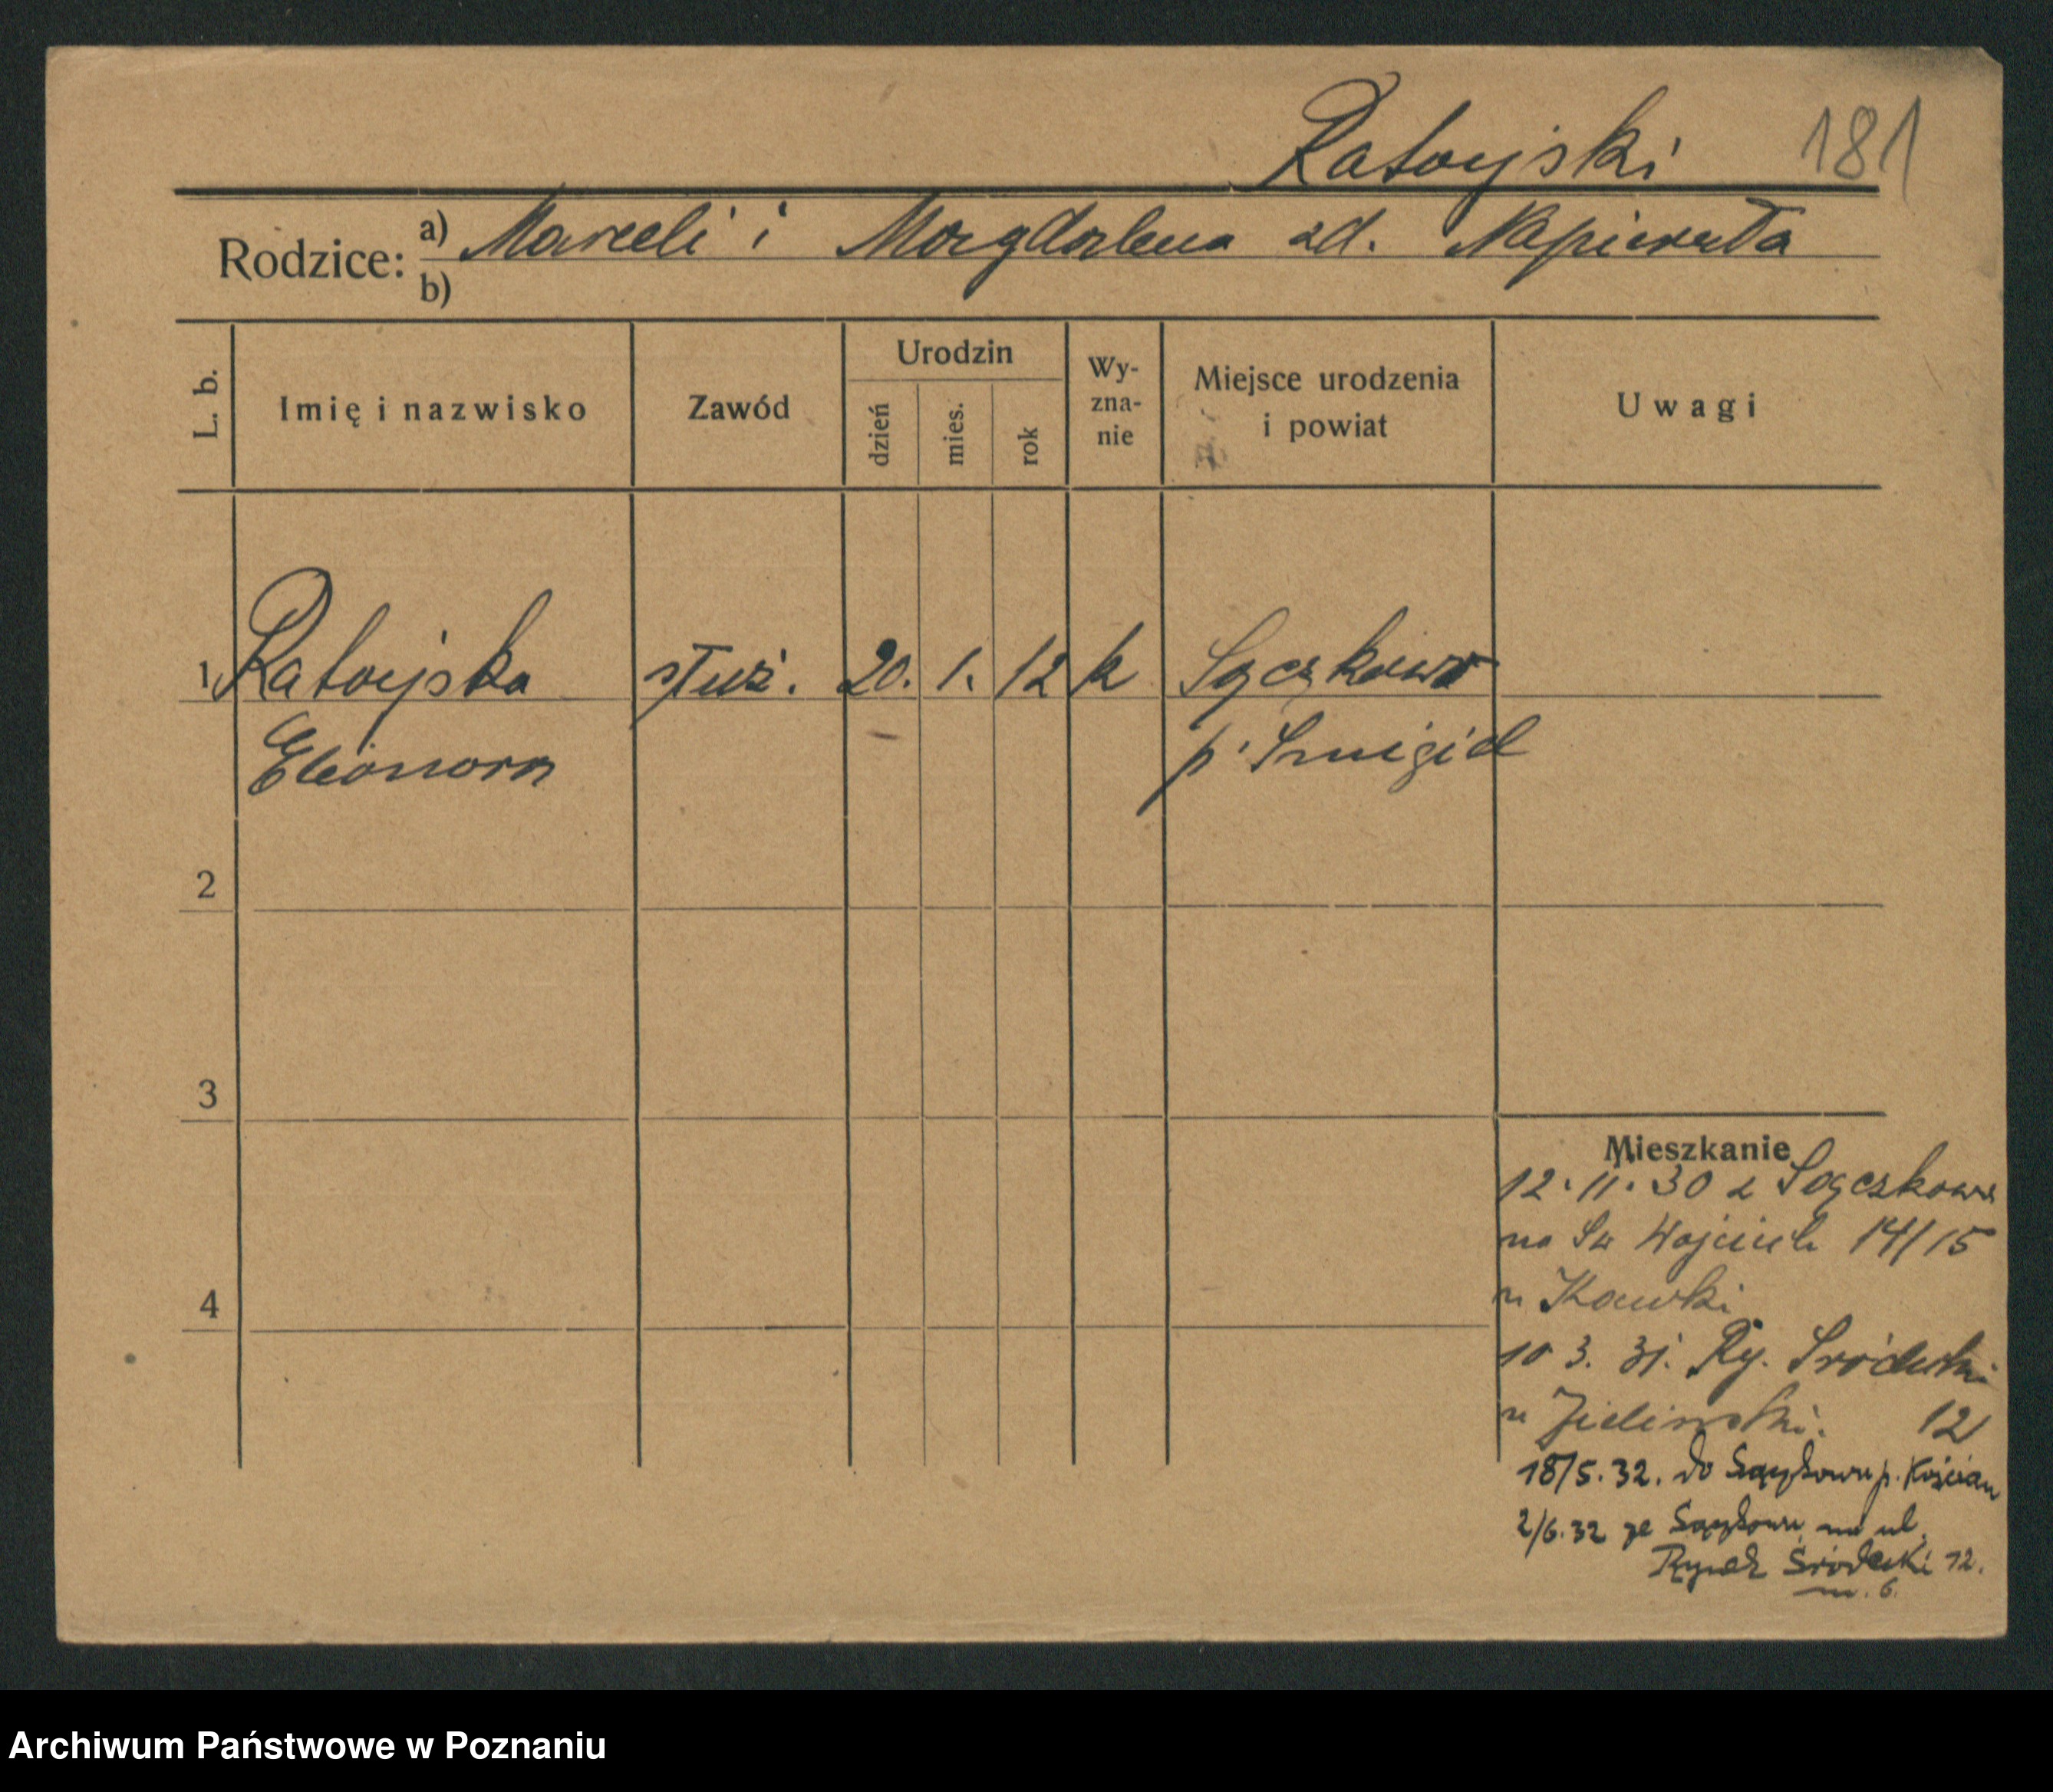 Ratajski 181
Rodzice: a) Marceli i Magdalena zd. Napierała
b)
L. b. Imię i nazwisko Zawód Urodzin dzień mies. rok Wy-zna-nie Miejsce urodzenia i powiat Uwagi
1 Ratajska służ. 20. 1. 12 k Sączkowo
Eleonora p. Śmigiel
2
3
4
Mieszkanie
12.11.30 z Sączkowa
na Św Wojciech 14/15
u Kawki
10 3. 31. Ry. Śródecki
u Zielinski. 12
18/5.32. do Sączkowa p. Kościan
2/6.32 ze Sączkowa na ul.
Rynek Śródecki 12.
m. 6.
Archiwum Państwowe w Poznaniu